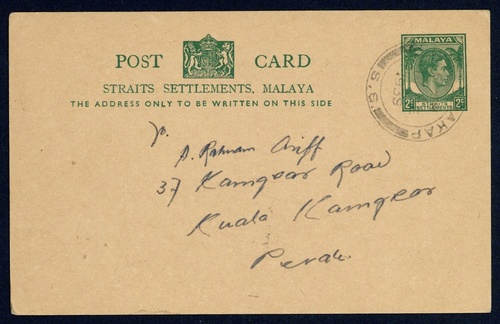 POST CARD
STRAITS SETTLEMENTS, MALAYA
THE ADDRESS ONLY TO BE WRITTEN ON THIS SIDE
MALAYA
STRAITS
SETTLEMENTS
2c 2c
S.S.
1939
To,
A. Rahman Ariff
37 Kamgsar Road
Kuala Kamgsar
Perak.